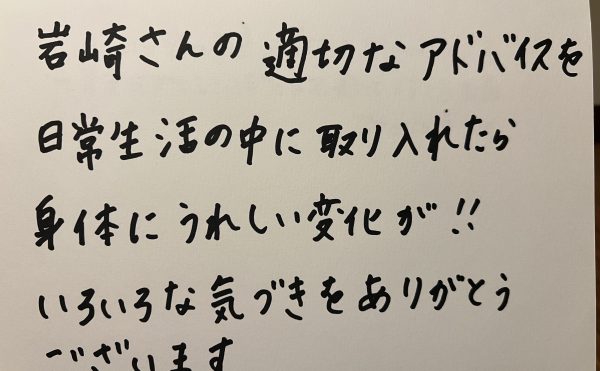 岩崎さんの適切なアドバイスを
日常生活の中に取り入れたら
身体にうれしい変化が!!
いろいろな気づきをありがとう
ございます